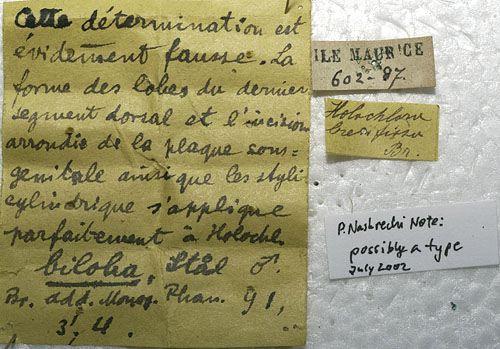 Cette détermination est
évidemment fausse. La
forme des lobes du dernier
segment dorsal et l'incision
arrondie de la plaque sous-
genitale ainsi que les styli
cylindrique s'applique
parfaitement à Holochl.
biloba, Stål ♂.
Br. add. Monog. Phan. 91,
3', 4.
ILE MAURICE
602-87.
Holochlora
brevifissa
Br.
P. Naskrecki Note:
possibly a type
July 2002